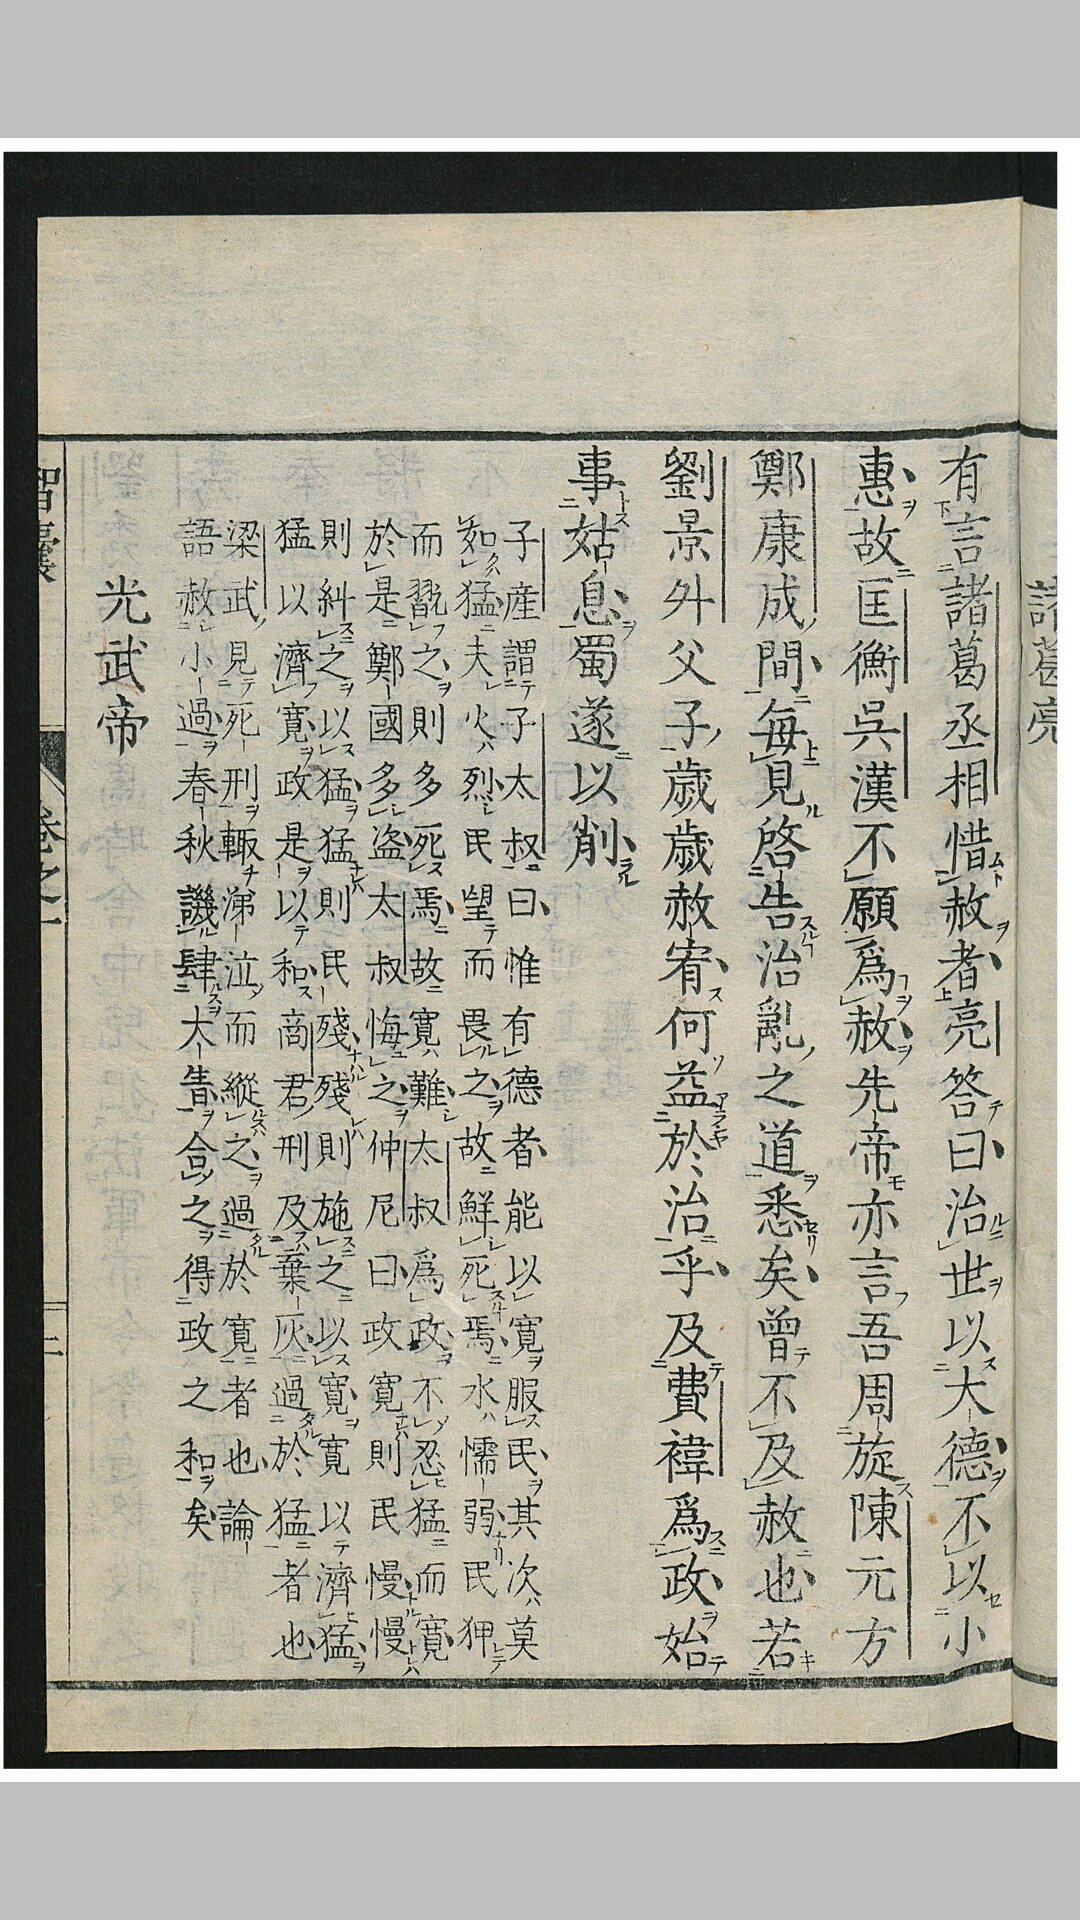 諸葛亮
有言諸葛丞相惜赦者亮答曰治世以大德不以小
惠故匡衡吳漢不願爲赦先帝亦言吾周旋陳元方
鄭康成間每見啓告治亂之道悉矣曾不及赦也若
劉景升父子歲歲赦宥何益於治乎及費禕爲政始
事姑息蜀遂以削
子產謂子太叔曰惟有德者能以寬服民其次莫
如猛夫火烈民望而畏之故鮮死焉水懦弱民狎
而翫之則多死焉故寬難太叔爲政不忍猛而寬
於是鄭國多盜太叔悔之仲尼曰政寬則民慢慢
則糾之以猛猛則民殘殘則施之以寬寬以濟猛
猛以濟寬政是以和商君刑及棄灰過於猛者也
梁武見死刑輙涕泣而縱之過於寬者也論
語赦小過春秋譏肆大眚合之得政之和矣
光武帝
智囊 卷之一